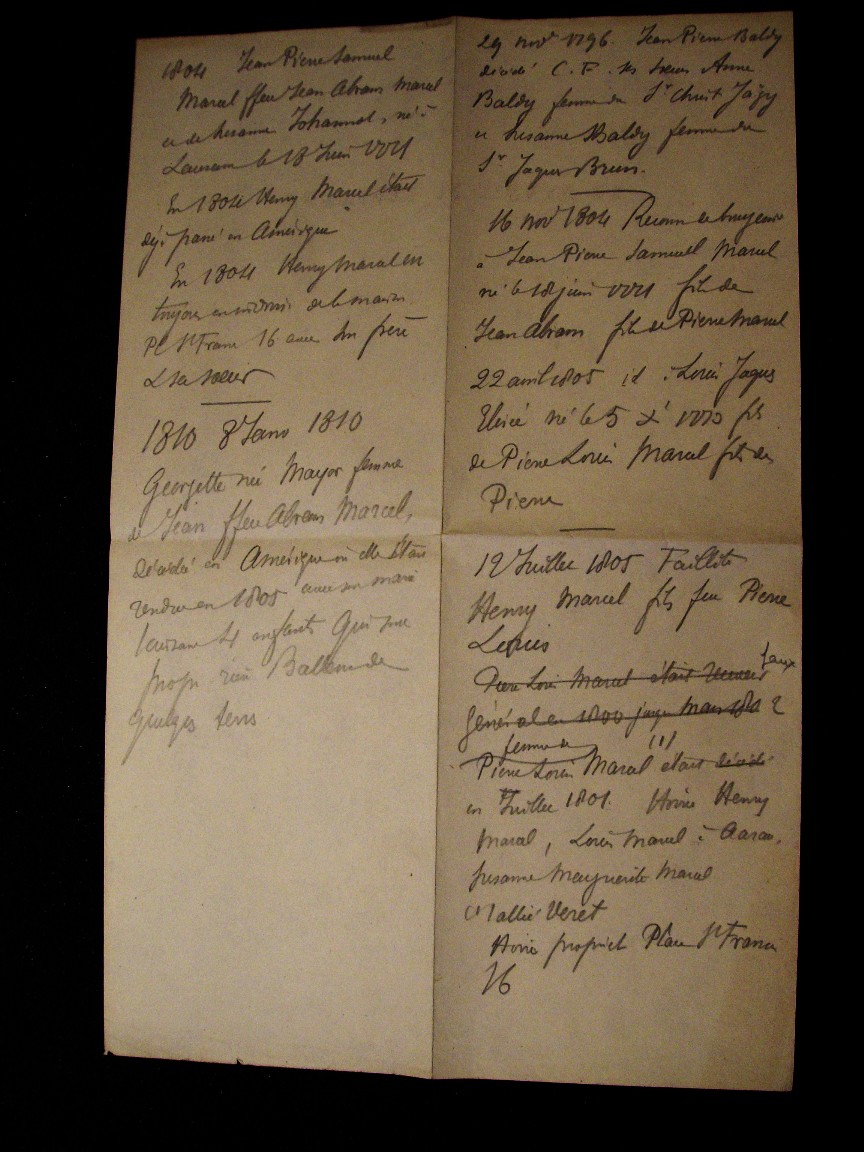 1804 Jean Pierre Samuel
Marcel ffeu Jean Abram Marcel
et de Susanne Johannot, né à
Lausanne le 18 Juin 1771
En 1804 Henry Marcel était
déjà passé en Amérique
En 1804 Henry Marcel en
toujours en indivis de la maison
Pl St Franc 16 avec son frère
& sa soeur
1810 8 Janv 1810
Georgette née Mayor femme
de Jean ffeu Abram Marcel,
décédée en Amérique où elle s'était
rendue en 1805 avec son mari
laissant 4 enfants qui sont
propr. rière Ballens de
quelques terres
29 novr 1796. Jean Pierre Baldy
décédé C.F. ses soeurs Anne
Baldy femme du Sr Christ Jaggy
et Susanne Baldy femme du
Sr Jaques Brun.
16 novr 1804 Reconn de bourgeoisie
à Jean Pierre Samuel Marcel
né le 18 juin 1771 fils de
Jean Abram fils de Pierre Marcel
22 avril 1805 id à Louis Jaques
Elisée né le 5 Xe 1773 fils
de Pierre Louis Marcel fils de
Pierre
12 Juillet 1805 Faillite
Henry Marcel fils feu Pierre
Louis
Pierre Louis Marcel était faux
Général en 1800 jusque Mars 180 2
femme de (1)
Pierre Louis Marcel était décédé
en Juillet 1801. Hoirs Henry
Marcel, Louis Marcel à Aarau,
Susanne Marguerite Marcel
(1) allié Veret
Hoirs propriét Place St Franc
16